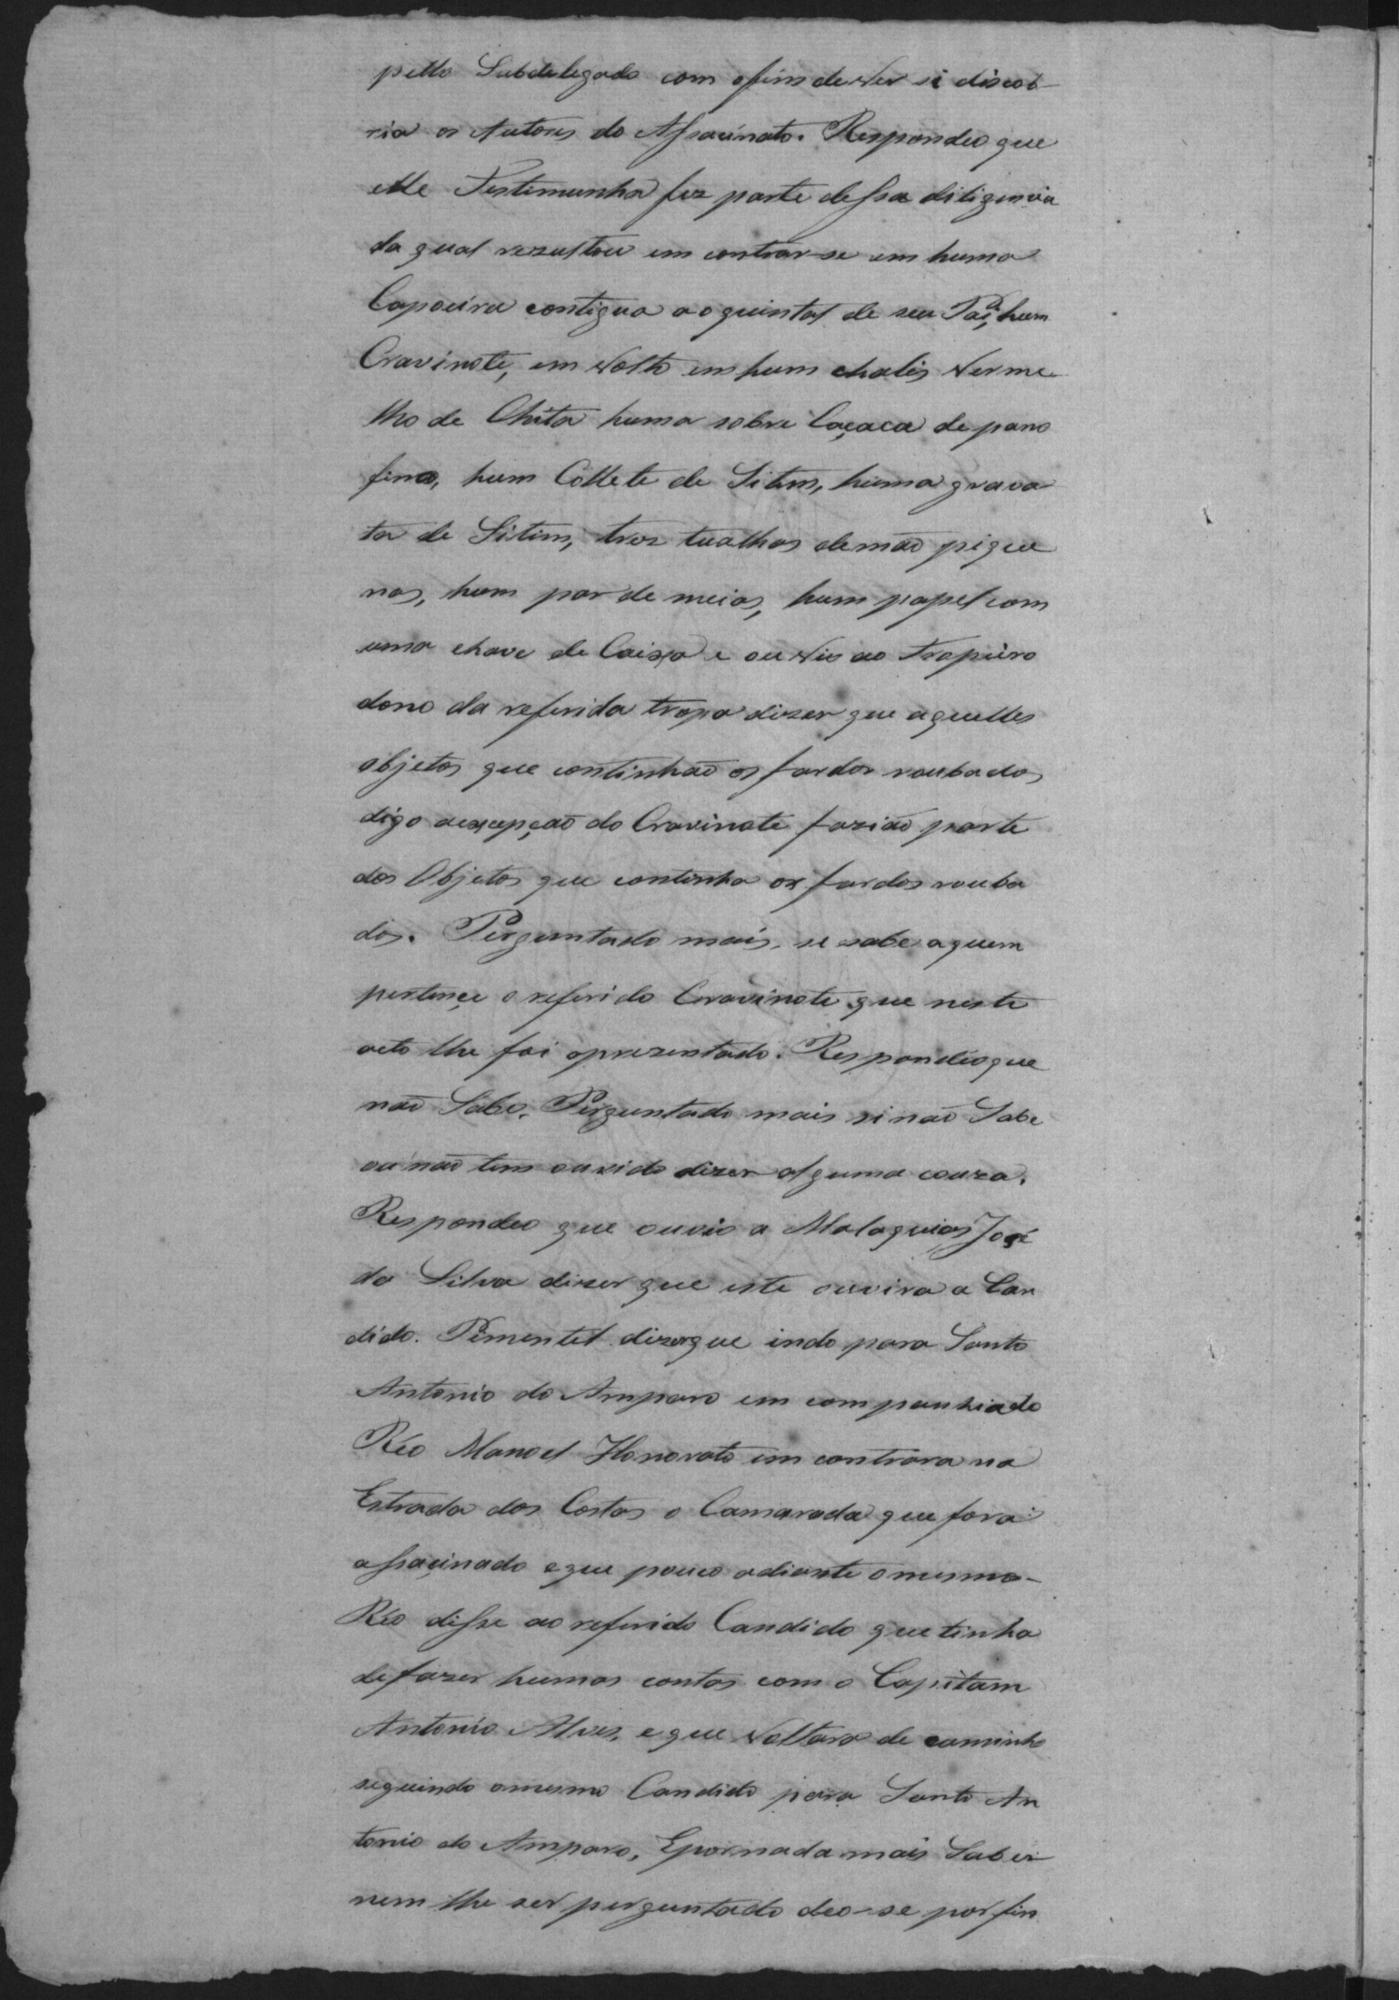 pello Subdelegado com ofim de ver si discob-
ria os Autores do Assacinato. Respondeo que
elle Testimunha fez parte dessa diligencia
da qual rezultou em contrar-se em huma
Capoeira contigua ao quintal de seu Pai, hum
Cravinote, em volto em hum chalis verme
lho de Chita huma sobre Caçaca de pano
fino, hum Collete de Sitim, huma grava
ta de Sitim, tres tualhas de mão pique
nas, hum par de meias, hum papel com
uma chave de Caixa e ouvio ao Tropeiro
dono da referida tropa dizer que aquelles
objetos que continhão os fardos roubados
digo aexcepção do Cravinote fazião parte
dos Objetos que continha os fardos rouba
dos. Perguntado mais, se sabe aquem
pertençe o referido Cravinote que neste
acto lhe foi aprezentado. Respondeo que
não Sabe. Perguntado mais si não Sabe
ou não tem ouvido dizer alguma couza.
Respondeo que ouvio a Malaquias José
da Silva dizer que este ouvira a Can
dido Pimentel dizer que indo para Santo
Antonio do Amparo em companhia do
Réo Manoel Honorato em contrara na
Estrada dos Costas o Camarada que fora
assaçinado e que pouco adiante o mesmo-
Réo disse ao referido Candido que tinha
de fazer humas contas com o Capitam
Antonio Alves, e que voltara de caminho
seguindo o mesmo Candido para Santo An
tonio do Amparo, E por nada mais Saber
nem lhe ser perguntado deo-se por fin